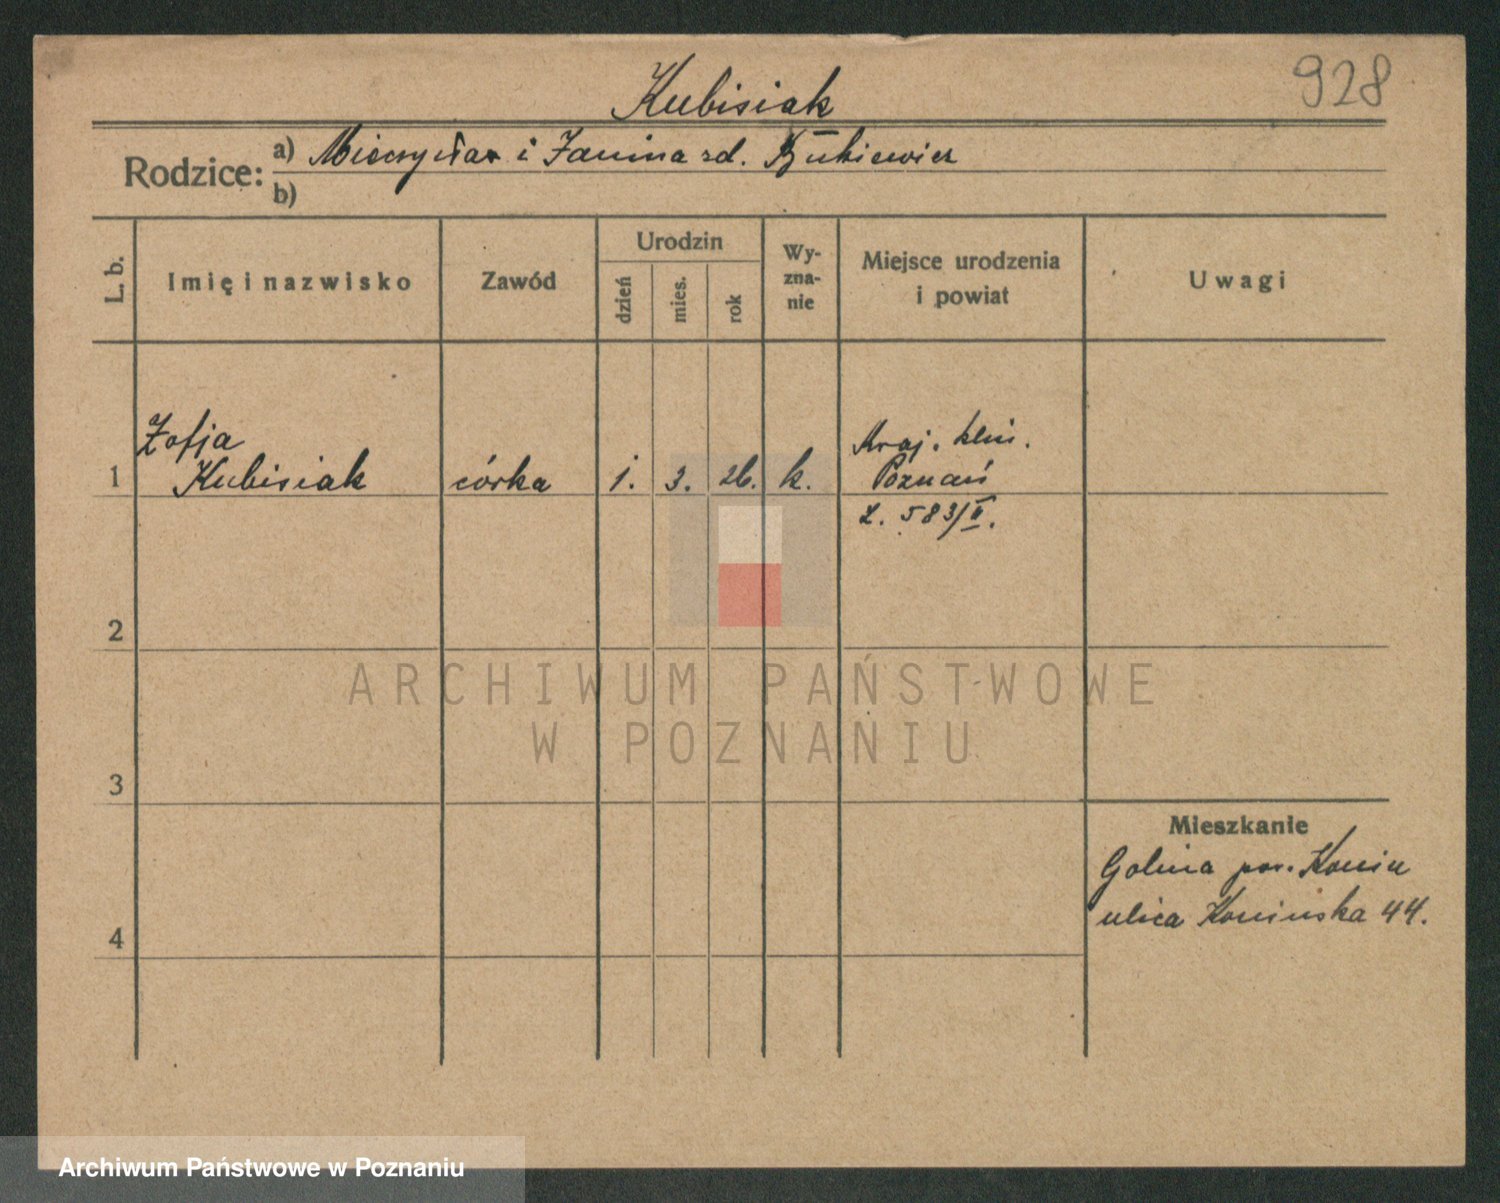 Kubisiak
928
Rodzice:
a) Mieczysław i Janina zd.
b)
L. b.
Imię i nazwisko
Zawód
Urodzin
dzień
mies.
rok
Wy-
zna-
nie
Miejsce urodzenia
i powiat
Uwagi
1
Zofja
Kubisiak
córka
1.
3.
26.
k.
Kraj. klin.
Poznań
L. 583/II.
2
3
4
Mieszkanie
Golina pow. Konin
ulica Konińska 44.
ARCHIWUM PAŃSTWOWE
W POZNANIU
Archiwum Państwowe w Poznaniu